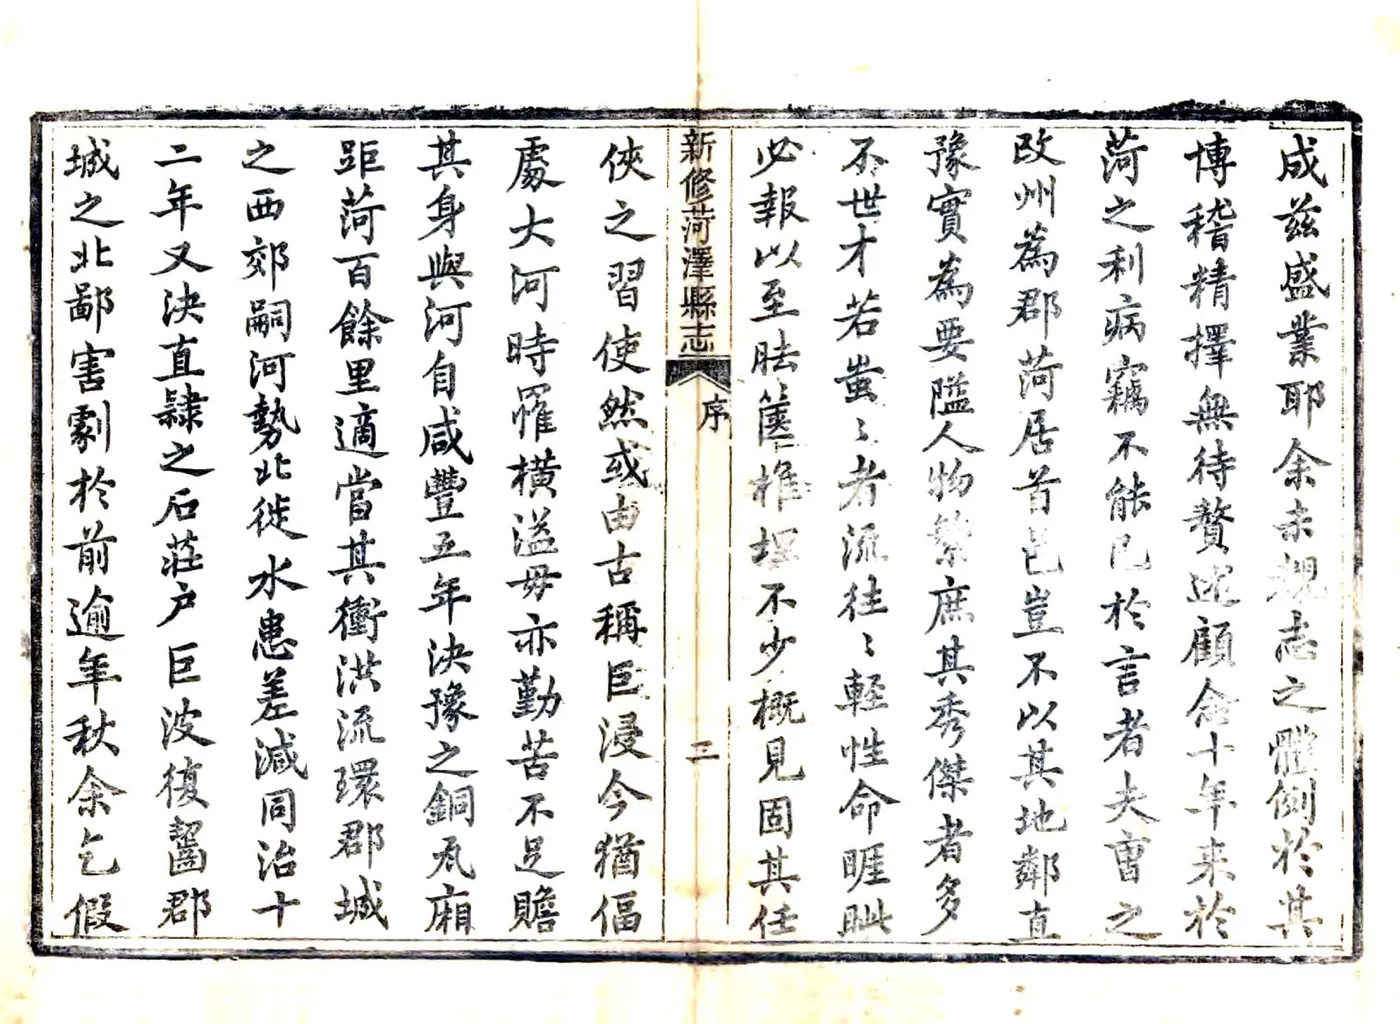 成茲盛業耶余未覩志之體例於其
博稽精擇無待贅述顧念十年来於
菏之利病竊不能已於言者夫曹之
改州為郡菏居首邑豈不以其地鄰直
豫實為要隘人物繁庶其秀傑者多
不世才若蚩〻者流往〻輕性命睚眦
必報以至胠篋椎埋不少概見固其任
新修菏澤縣志
序
二
俠之習使然或由古稱巨浸今猶偪
處大河時罹橫溢毋亦勤苦不足贍
其身與河自咸豐五年決豫之銅瓦廂
距菏百餘里適當其衝洪流環郡城
之西郊嗣河勢北徙水患差減同治十
二年又決直隸之石莊戶巨波復齧郡
城之北鄙害劇於前逾年秋余乞假